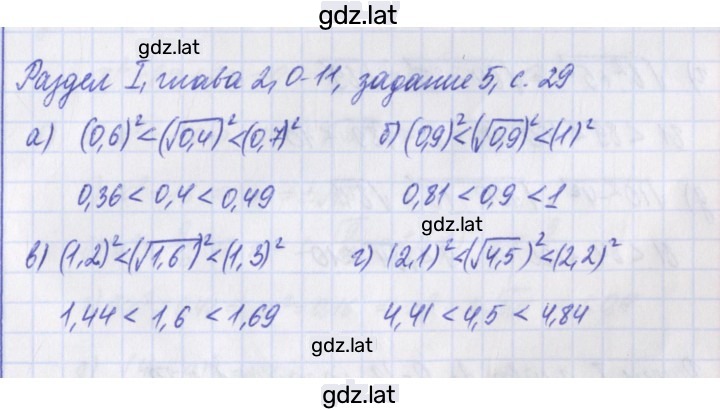 gdz.lat
gdz.lat
Раздел I, глава 2, О-11, задание 5, с. 29
а) (0,6)² < (√0,4)² < (0,7)² б) (0,9)² < (√0,9)² < (1)²
0,36 < 0,4 < 0,49 0,81 < 0,9 < 1
gdz.lat
в) (1,2)² < (√1,6)² < (1,3)² г) (2,1)² < (√4,5)² < (2,2)²
1,44 < 1,6 < 1,69 4,41 < 4,5 < 4,84
gdz.lat
gdz.lat